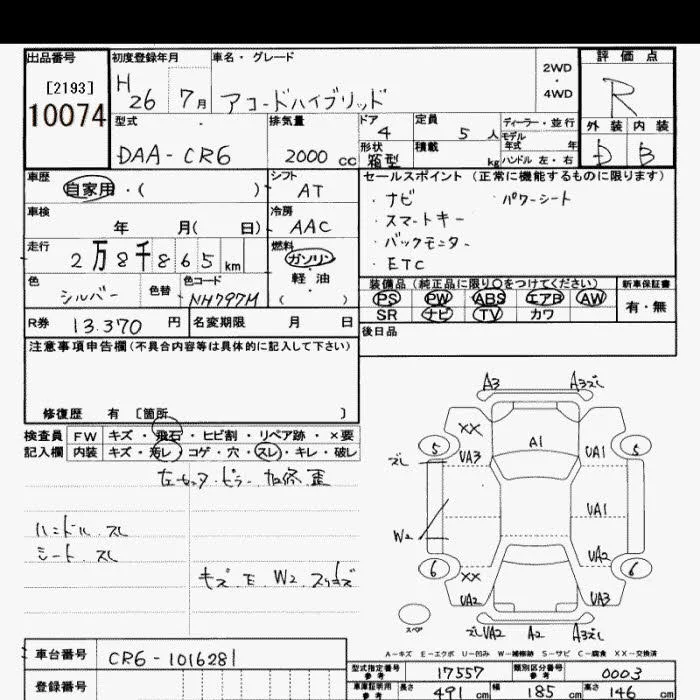 出品番号 初度登録年月 車名・グレード 2WD・4WD 評価点
[2193] 10074 H26 7月 アコードハイブリッド R
外装 内装
D B
型式 排気量 ドア 定員 ディーラー・並行
DAA-CR6 2000cc 4 5人 モデル年式 年
形状 積載
箱型 kg ハンドル 左・右
車歴 シフト セールスポイント (正常に機能するものに限ります)
自家用・( ) AT ・ナビ ・パワーシート
・スマートキー
車検 冷房
年 月( 日) AAC ・バックモニター
走行 燃料
2万8千865km ガソリン ・ETC
軽油
( )
色 色替 色コード 装備品 (純正品に限り○をつけてください) 新車保証書
シルバー NH797M PS PW ABS エアB AW 有・無
SR ナビ TV カワ
R券 13.370円 名変期限 月 日 後日品
注意事項申告欄(不具合内容等は具体的に記入して下さい)
修復歴 有 [箇所 ]
検査員 FW キズ・飛石・ヒビ割・リペア跡・×要
記入欄 内装 キズ・汚レ・コゲ・穴・スレ・キレ・破レ
ハンドル スレ
シート スレ
キズ E W2 スリキズ
A3 A3ズレ
XX A1
5 UA3 UA1 5
ズレ
UA1
W2
UA2
6 XX 6
UA2 UA3
スペア
ズレUA2 A2 A3ズレ
A-キズ E-エクボ U-凹み W-補修跡 S-サビ C-腐食 XX-交換済
車台番号 CR6-1016281
登録番号
型式指定番号 参考 17557 類別区分番号 参考 0003
車庫証明用 参考 長さ 491cm 幅 185cm 高さ 146cm